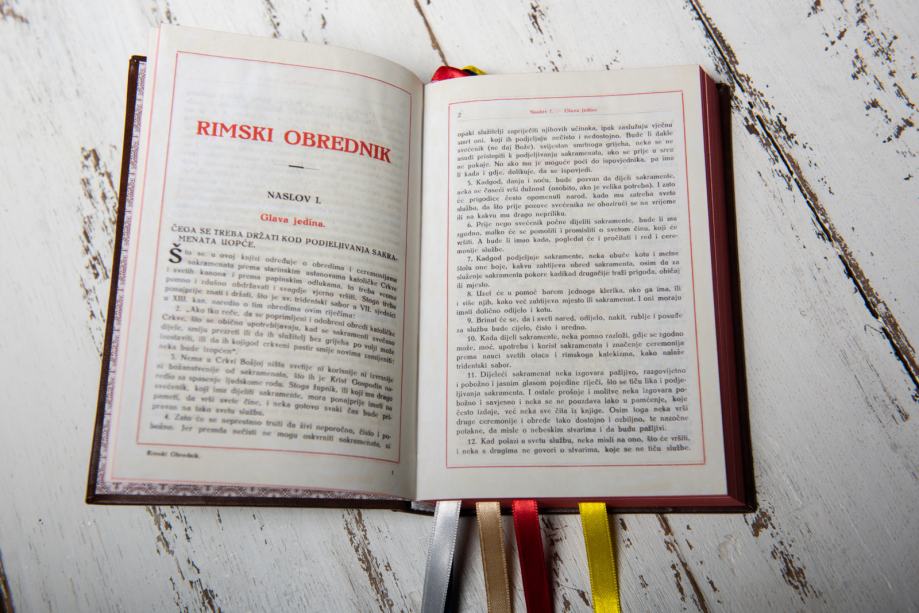 RIMSKI OBREDNIK
NASLOV I.
Glava jedina.
ČEGA SE TREBA DRŽATI KOD PODJELJIVANJA SAKRA-
MENATA UOPĆE.
Što se u ovoj knjizi određuje o obredima i ceremonijama
sakramenata prema starinskim ustanovama katoličke Crkve
i svetih kanona i prema papinskim odlukama, to treba veoma
pomno i zdušno obdržavati i svegdje vjerno vršiti. Stoga treba
ponajprije znati i držati, što je sv. tridentski sabor u VII. sjednici
u XIII. kan. naredio o tim obredima ovim riječima:
2. „Ako tko reče, da se poprimljeni i odobreni obredi katoličke
Crkve, što se obično upotrebljavaju, kad se sakramenti svečano
dijele, smiju prezreti ili da ih služitelj bez grijeha po volji može
izostaviti, ili da ih kojigod crkveni pastir smije novima zamijeniti:
neka bude izopćen“.
3. Nema u Crkvi Božjoj ništa svetije ni korisnije ni izvrsnije
ni božanstvenije od sakramenata, što ih je Krist Gospodin na-
redio za spasenje ljudskome rodu. Stoga župnik, ili koji mu drago
svećenik, koji ima dijeliti sakramente, mora ponajprije imati na
pameti, da vrši svete čine, i neka gotovo svaki čas bude pri-
pravan na tako svetu službu.
4. Zato će se neprestano truditi da živi neporočno, čisto i po-
božno. Jer premda nečisti ne mogu oskvrniti sakramenata, ni
Rimski Obrednik.
1
2
Naslov I. — Glava jedina
opaki služitelji zapriječiti njihovih učinaka, ipak zaslužuju vječnu
smrt oni, koji ih podjeljuju nečisto i nedostojno. Bude li dakle
svećenik (ne daj Bože), svijestan smrtnoga grijeha, neka se ne
usudi pristupiti k podjeljivanju sakramenata, ako se prije u srcu
ne pokaje. No ako mu je moguće poći do ispovjednika, pa ima
li kada i gdje, dolikuje, da se ispovjedi.
5. Kadgod, danju i noću, bude pozvan da dijeli sakramente,
neka ne časeći vrši dužnost (osobito, ako je velika potreba). I zato
će prigodice često opomenuti narod, kada mu zatreba sveta
služba, da što prije pozove svećenika ne obazirući se na vrijeme
ili na kakvu mu drago nepriliku.
6. Prije nego svećenik počne dijeliti sakramente, bude li mu
zgodno, malko će se pomoliti i promisliti o svetom činu, koji će
vršiti. A bude li imao kada, pogledat će i pročitati i red i cere-
monije službe.
7. Kadgod podjeljuje sakramente, neka obuče kotu i metne
štolu one boje, kakvu zahtijeva obred sakramenta, osim da za
služenje sakramenta pokore kadikad drugačije traži prigoda, običaj
ili mjesto.
8. Uzet će u pomoć barem jednoga klerika, ako ga ima, ili
i više njih, kako već zahtijeva mjesto ili sakramenat. I oni moraju
imati dolično odijelo i kotu.
9. Brinut će se, da i sveti nared, odijelo, nakit, rublje i posuđe
za službu bude cijelo, čisto i uredno.
10. Kada dijeli sakramente, neka pomno razloži, gdje se zgodno
može, moć, upotreba i korist sakramenata i značenje ceremonija
prema nauci svetih otaca i rimskoga katekizma, kako nalaže
tridentski sabor.
11. Dijeleći sakramenat neka izgovara pažljivo, razgovijetno
i pobožno i jasnim glasom pojedine riječi, što se tiču lika i podje-
ljivanja sakramenta. I ostale prošnje i molitve neka izgovara po-
božno i savjesno i neka se ne pouzdava lako u pamćenje, koje
često izdaje, već neka sve čita iz knjige. Osim toga neka vrši
druge ceremonije i obrede tako dostojno i ozbiljno, te nazočne
potakne, da misle o nebeskim stvarima i da budu pažljivi.
12. Kad polazi u svetu službu, neka misli na ono, što će vršiti,
i neka s drugima ne govori u stvarima, koje se ne tiču službe.